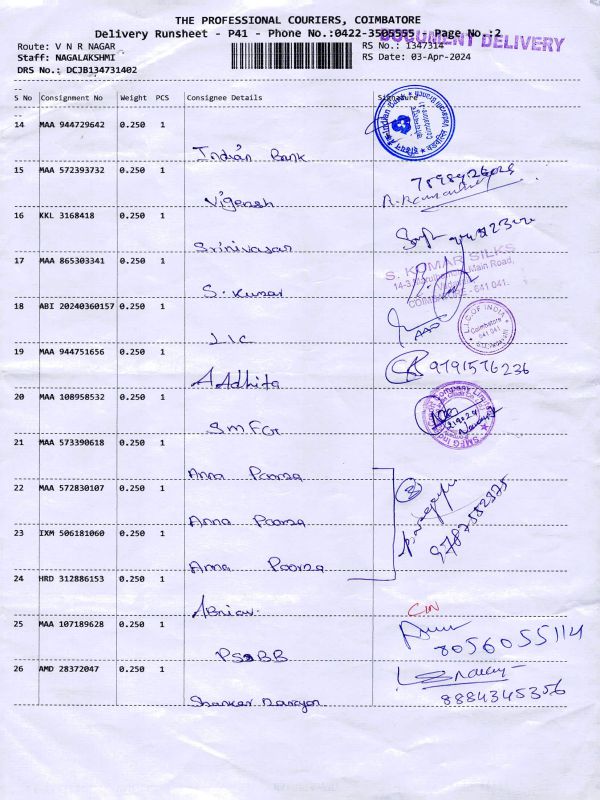 THE PROFESSIONAL COURIERS, COIMBATORE
Delivery Runsheet - P41 - Phone No.:0422-3505555 Page No.:2
DOCUMENT DELIVERY
Route: V N R NAGAR RS No.: 1347314
Staff: NAGALAKSHMI RS Date: 03-Apr-2024
DRS No.: DCJB134731402
S No Consignment No Weight PCS Consignee Details Signature
14 MAA 944729642 0.250 1
Indian Bank
15 MAA 572393732 0.250 1
Vigensh
16 KKL 3168418 0.250 1
Srinivasan
17 MAA 865303341 0.250 1
S. KUMAR SILKS
Main Road,
COIMBATORE - 641 041.
S. Kumar
18 ABI 20240360157 0.250 1
L.I.C. OF INDIA
Coimbatore
641 041
LIC
19 MAA 944751656 0.250 1
9791576236
AAdhita
20 MAA 108958532 0.250 1
SMFG
21 MAA 573390618 0.250 1
Anna Poorna
22 MAA 572830107 0.250 1
Anna Poorna
23 IXM 506181060 0.250 1
9787582975
Anna Poorna
24 HRD 312886153 0.250 1
25 MAA 107189628 0.250 1
8056055114
PSBB
26 AMD 28372047 0.250 1
8884345356
Shankar Narayan